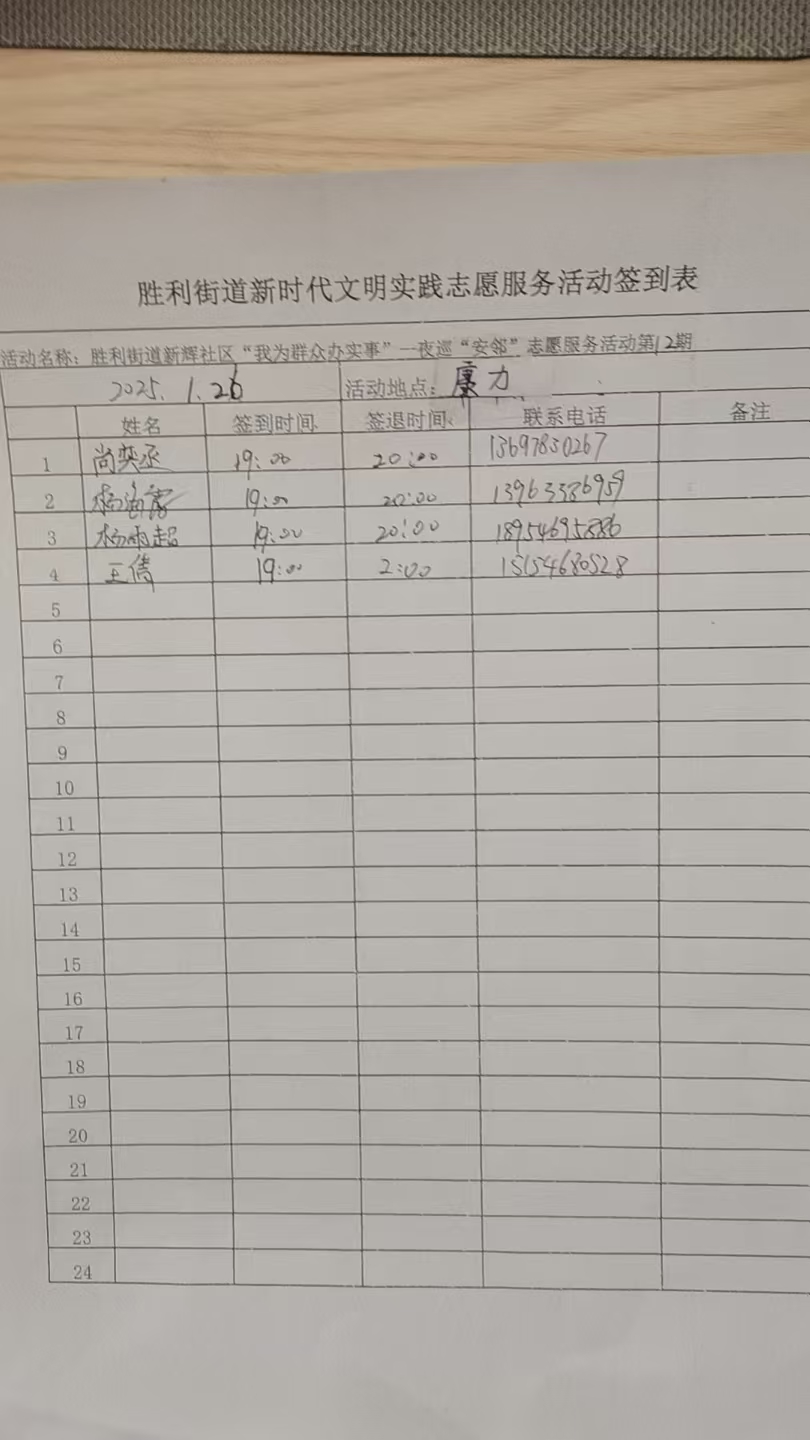 胜利街道新时代文明实践志愿服务活动签到表
活动名称：胜利街道新辉社区“我为群众办实事”一夜巡“安邻”志愿服务活动第12期
2025.1.26 活动地点：康力
姓名 签到时间 签退时间 联系电话 备注
1 尚奕丞 19:00 20:00 13697830267
2 19:00 20:00 13963386959
3 杨雨超 19:00 20:00 18954695886
4 王倩 19:00 2:00 15154680528
5
6
7
8
9
10
11
12
13
14
15
16
17
18
19
20
21
22
23
24